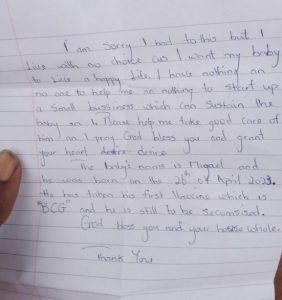 I am sorry I had to this but I
live with no choice cus I want my baby
to live a happy life. I have nothing an
no one to help me an nothing to start up
a small bussiness which can sustain the
baby an I. Please help me take good care of
him an I pray God bless you and grant
your heart desire desire
The baby's name is Miguel and
he was born on the 26th of April 2023.
He has taken his first Vaccine which is
"BCG" and he is still to be secumsised.
God bless you and your house whole.
Thank You